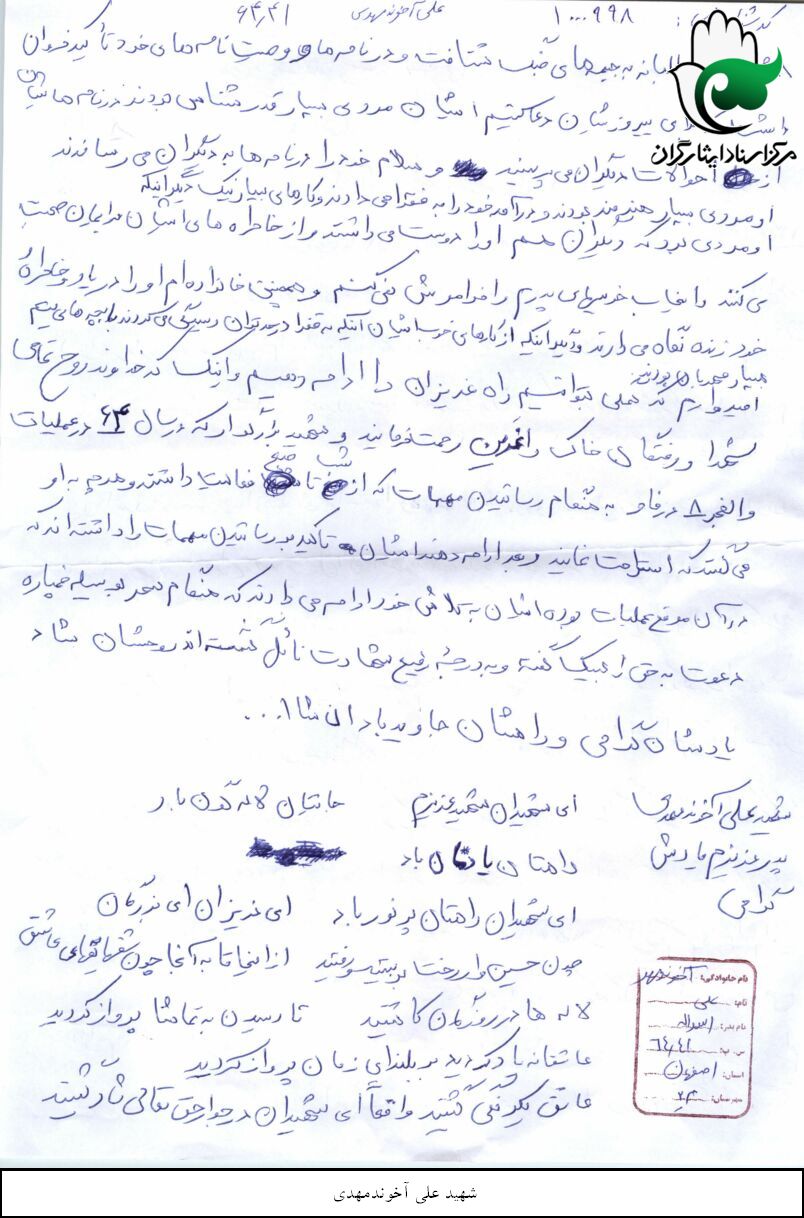 علی آخوندمهدی
۱۰۰۰۹۹۸
مرکز اسناد ایثارگران
به جبهه‌های جنگ شتافت و در نامه‌ها و وصیت نامه‌های خود تأکید فراوان
پیروزیشان دعا کنیم ایشان مردی بسیار قدرشناس بودند در نامه‌هایشان
از احوالات دیگران می پرسند و سلام خود را در نامه‌ها به دیگران می رساندند
او مردی بسیار هنرمند بودند و درآمد خود را به فقرا می دادند و کارهای بسیار نیک دیگر اینکه
او مردی بود که دیگران هم او را دوست می داشتند و از خاطره های ایشان برایمان صحبت
می کنند و اینجانب خوبیهای پدرم را فراموش نمی کنم و همچنین خانواده‌ام او را در یاد و خاطرهٔ
خود زنده نگاه می دارند و دیگر اینکه از کارهای خوب ایشان آنکه به فقرا در حد توان رسیدگی می کردند با بچه های یتیم
بسیار مهربان بودند
امیدوارم که همگی بتوانیم راه عزیزان را ادامه دهیم و اینک که خداوند روح تمامی
شهدا و رفتگان خاک را قرین رحمت فرمایند و شهید بزرگوار که در سال ۶۴ در عملیات
والفجر ۸ در فاو به هنگام رساندن مهمات که از شب تا صبح فعالیت داشتند و هرچه به او
می گفتند که استراحت نمایند و بعد ادامه دهند ایشان تأکید بر رساندن مهمات را داشته اند که
در آن موقع عملیات بوده ایشان به تلاش خود ادامه می دادند که هنگام سحر بوسیله خمپاره
دعوت به حق را لبیک گفته و به درجه رفیع شهادت نائل گشته اند روحشان شاد
یادشان گرامی و راهشان جاوید باد ان شاا...
شهید علی آخوندمهدی
پدر عزیزم یادش
گرامی
ای شهیدان شهید عزیزم جانتان لاله گون باد
راهتان یادتان باد
ای شهیدان راهتان پرنور باد ای عزیزان ای بزرگان
چون حسین وار رخت بربستید و رفتید از اینجا تا به آنجا چون شقایقهای عاشق
لاله ها در روزگان کاشتید تا رسیدن به تماشا پرواز کردید
عاشقانه یاد کردید بر بلندای زمان پرواز کردید
عاشق یکرنگی گشتید واقعاً ای شهیدان در جوار حق تعالی شاد گشتید
نام خانوادگی: آخوندمهدی
نام: علی
نام پدر: اسداله
استان: اصفهان
شهید علی آخوندمهدی